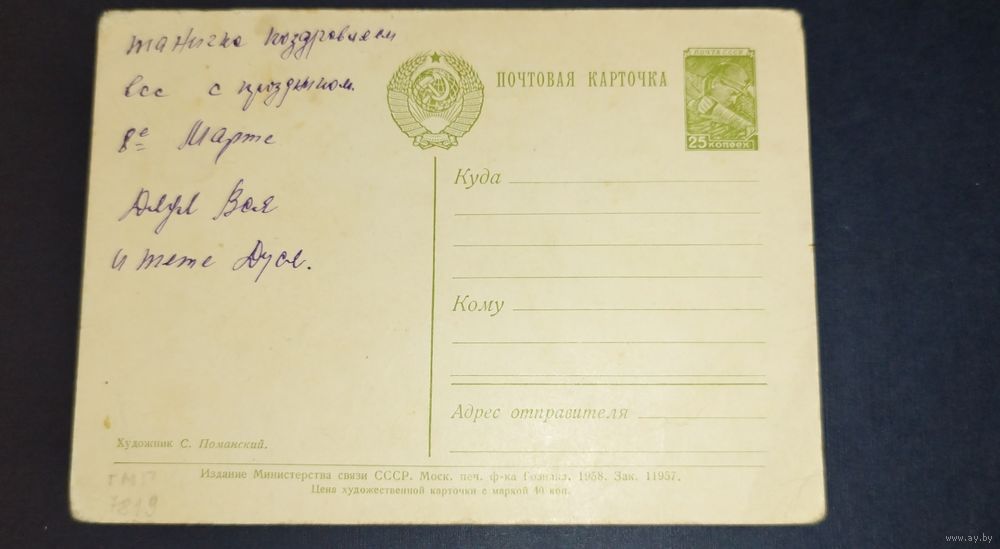 Таничка поздравляем
вас с праздником
8е Марте
Дядя Вася
и тетя Дуся.
ПОЧТОВАЯ КАРТОЧКА
ПОЧТА СССР
25 КОПЕЕК
Куда
Кому
Адрес отправителя
Художник С. Поманский.
Издание Министерства связи СССР. Моск. печ. ф-ка Гознака. 1958. Зак. 11957.
Цена художественной карточки с маркой 40 коп.
7819
www.ay.by